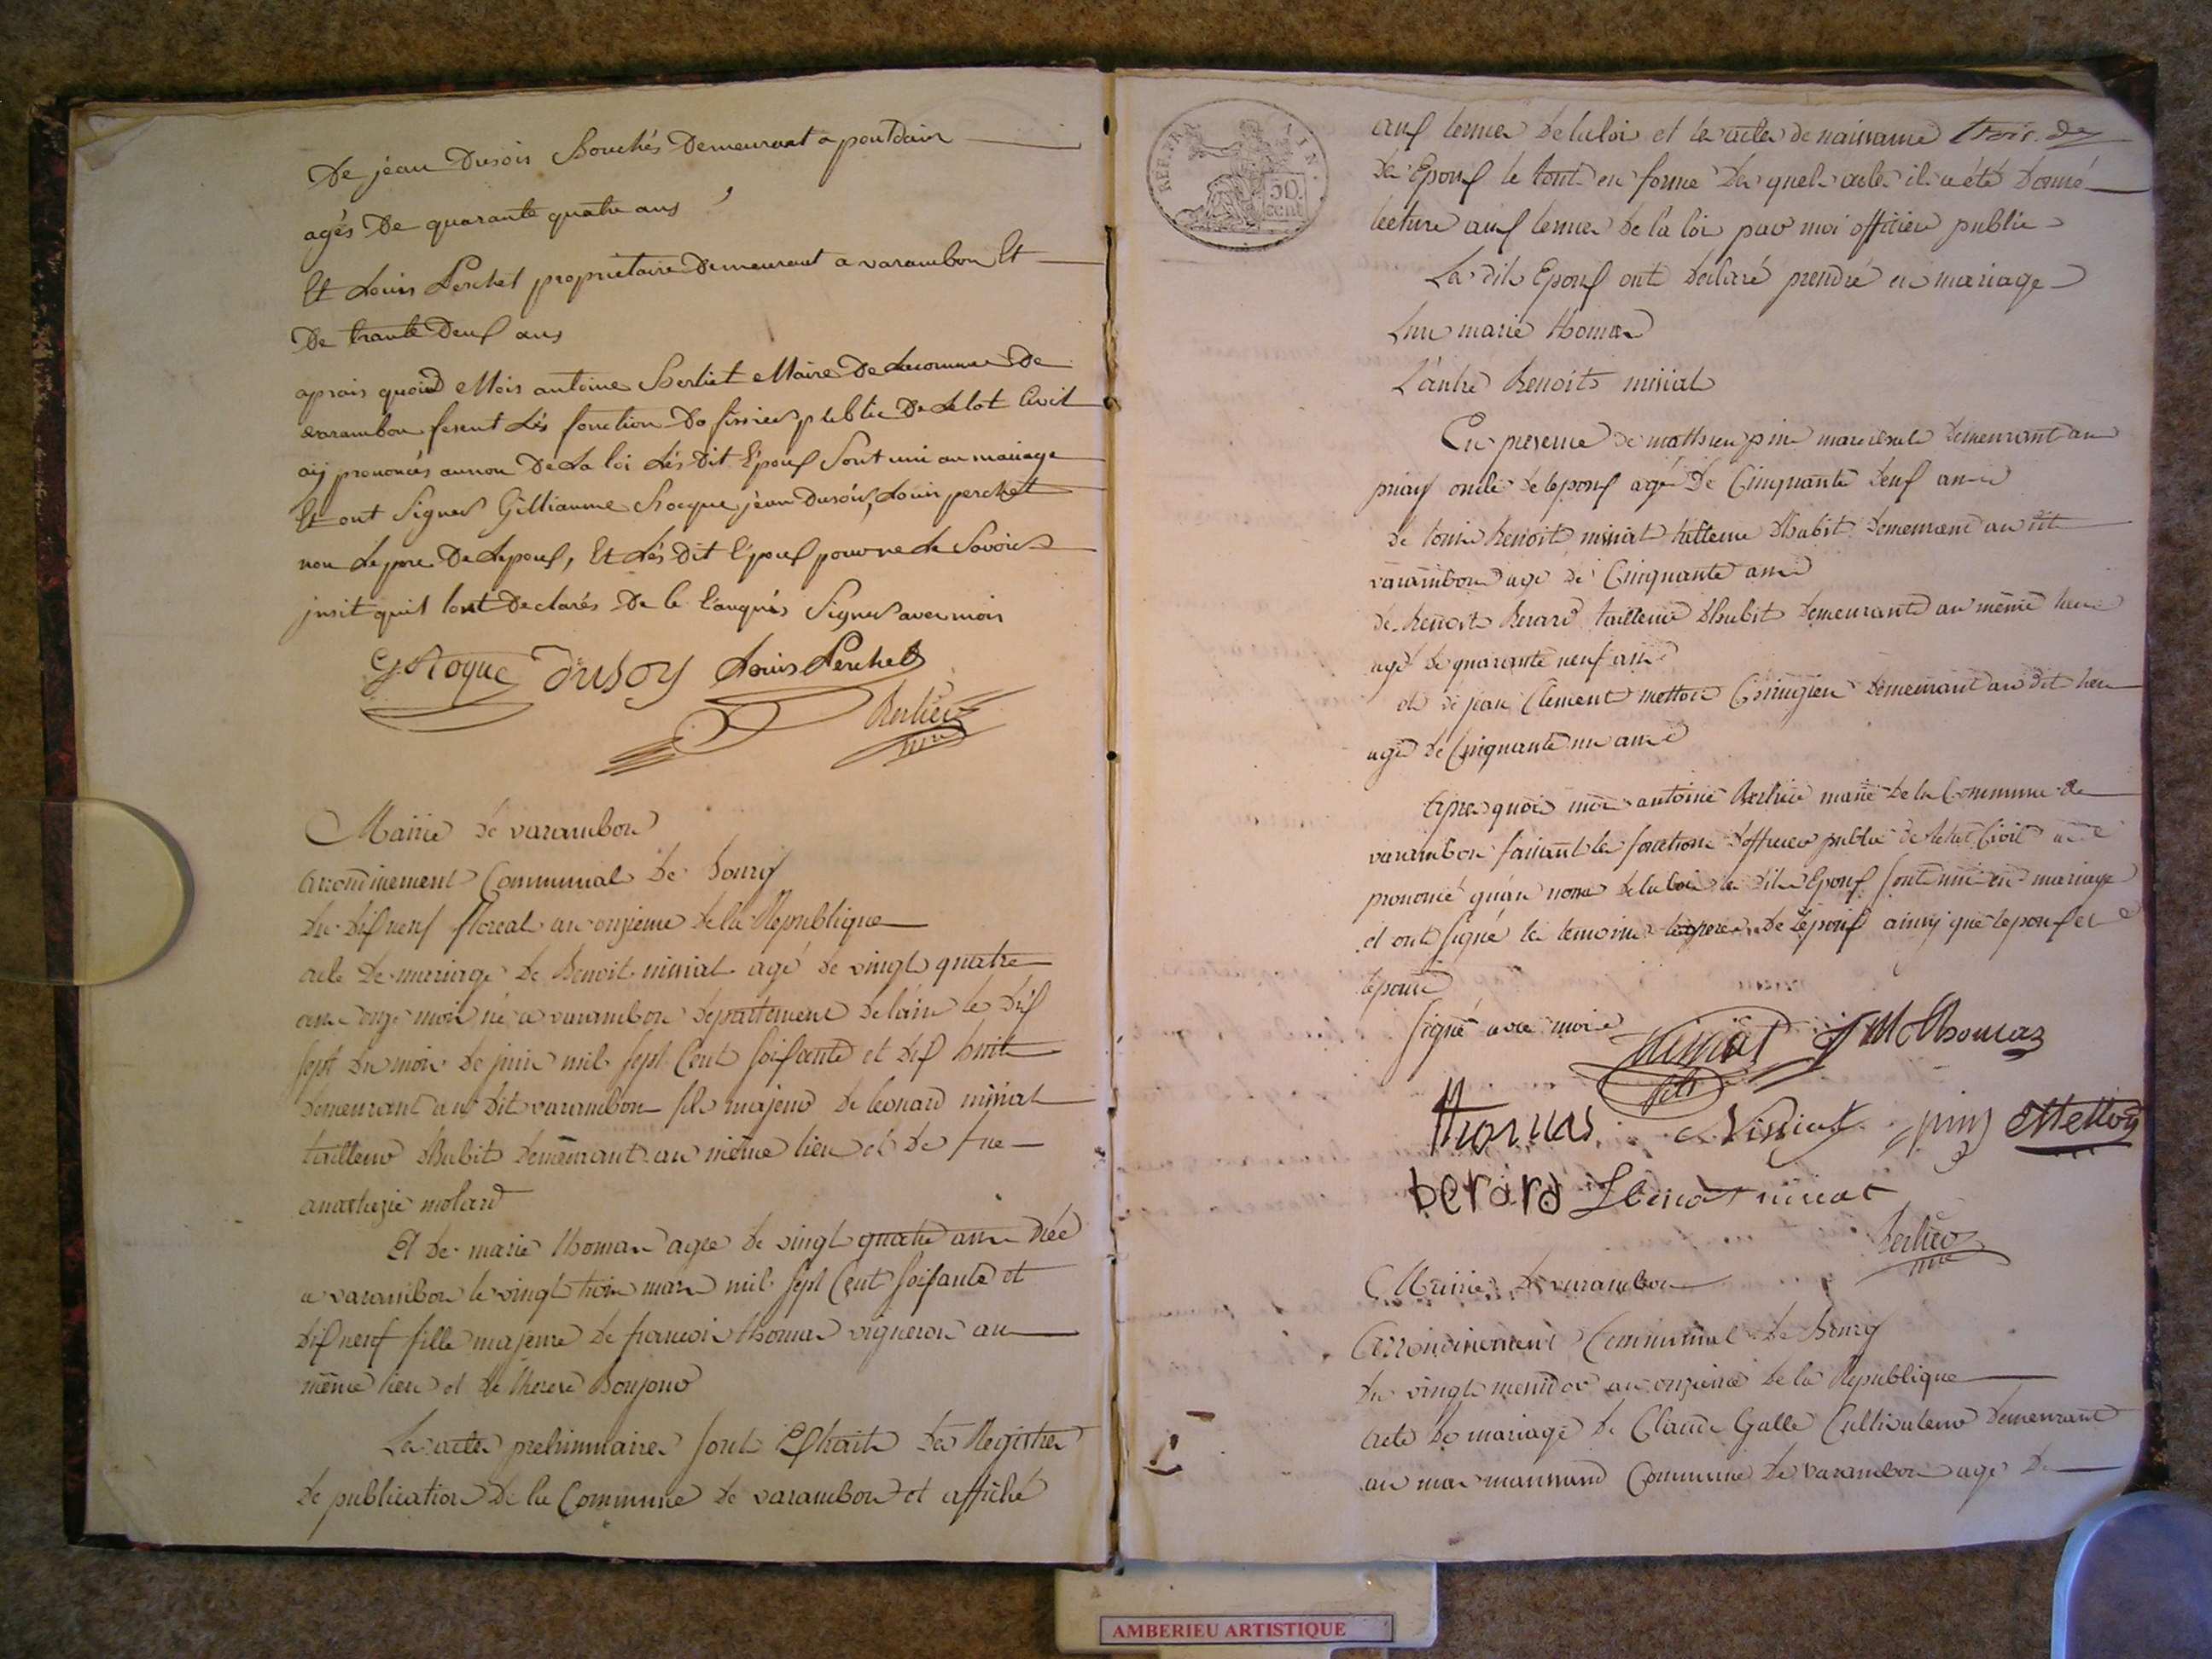 De jéan Dusois Bouchés Demeurant a pontdain
agés De quarante quatre ans
Et Louis Perchet propriétaire Demeurant a varambon Et
De trante Deux ans
aprais quoid Mois antoine Berliet Maire De Lacomune De
varambon fesent Lés fonction Do fissier public De Letat Civil
aij prononcés aunon De La loi Lés Dit Epoux Sont uni au mariage
Et ont Signes Gilliaume Rocque jéan Dusois, Louis perchet
non Lepere De Lepoux, Et Lés Dit Epoux pour ne Le Savoir
jnsit quil lont Declarés De le Lanqués Signés avec mois
G. Roque Dusoy Louis Perchet
Berliet
mre
Mairie de varambon
arrondinement Communal de bourg
du dix neuf floreal an onzieme de la Republique
acte de mariage de Benoit niniat agé de vingt quatre
ans onze mois né a varambon departement de lain le dix
sept du mois de juin mil sept Cent soixante et dix huit
demeurant au dit varambon fils majeur de leonard niniat
tailleur dhabit demeurant au même lieu et de fue
anathezie molard
Et de marie thomas agée de vingt quatre ans née
a varambon le vingt trois mars mil sept Cent soixante et
dix neuf fille majeure de francois thomas vigneron au
même lieu et de therese Boujour
Les actes preliminaires sont Extraits des Registres
de publication de la Commune de varambon et affiché
REP. FRA
50.
cent
aux termes de la loi et les actes de naissance trois des
des Epoux le tout en forme des quels actes il a été donné
lecture aux termes de la loi par moi officier public
Les dits Epoux ont declaré prendre en mariage
Lun marie thomas
L'autre Benoit niniat
En presence de mathieu pin marechal demeurant au
priay oncle de lepoux agé De Cinquante deux ans
de Benoit niniat tailleur dhabit demeurant au dit
varambon agé de Cinquante ans
de Benoit Berard tailleur dhabit demeurant au même lieu
agé de quarante neuf ans
et de jean Clement metton Chirugien demeurant au dit lieu
agé de Cinquante un ans
Apres quoi moi antoine Berliet maire de la Commune de
varambon faisant les fonctions dofficier public de letat Civil ai
prononcé quau nom de la loi les dits Epoux sont uni en mariage
et ont signé les temoins de Lepoux ainsy que lepoux et
lepouse
signé avec moi
niniat J M thomas
fils
thomas niniat pin Metton
berard Benoit niniat
Berliet
mre
Mairie de varambon
Arrondinement Communal de Bourg
du vingt mesidor an onzieme de la Republique
acte de mariage de Claude Galle Cultivateur demeurant
au mas Commune de varambon agé de
AMBERIEU ARTISTIQUE